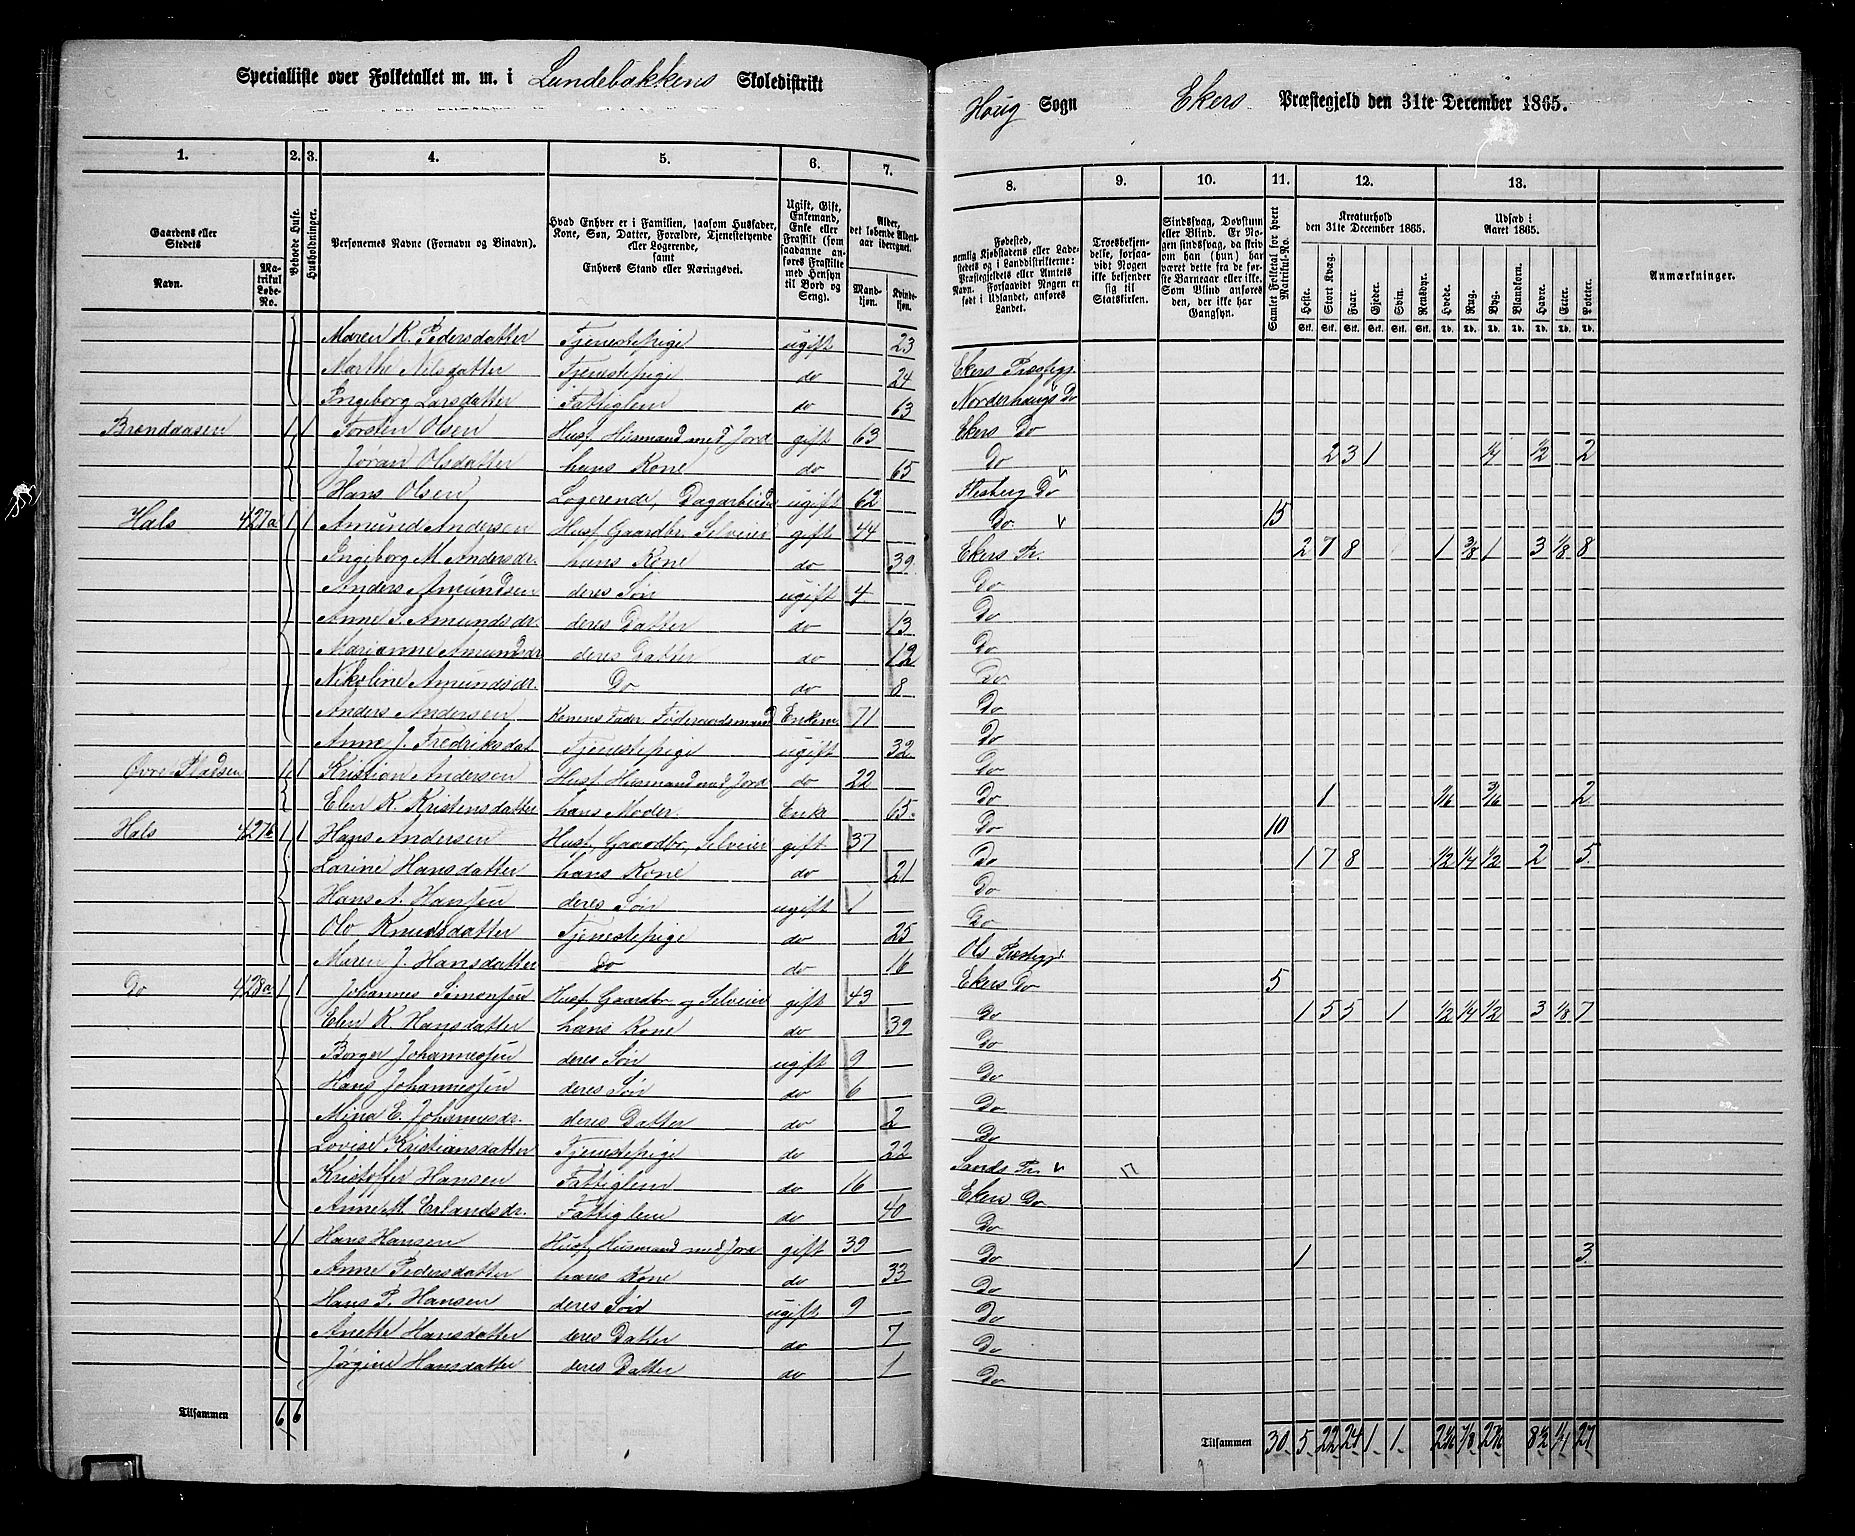 Specialliste over Folketallet m. m. i Lundebakkens Skoledistrikt
Houg Sogn Ekers Præstegjeld den 31te December 1865.
1. 2. 3. 4. 5. 6. 7. 8. 9. 10. 11. 12. 13.
Gaardens eller Stedets
Navn. Matrikul Løbe-No.
Beboede Huse.
Husholdninger.
Personernes Navne (Fornavn og Binavn).
Hvad Enhver er i Familien, saasom Husfader, Kone, Søn, Datter, Forældre, Tjenestetyende eller Logerende, samt Enhvers Stand eller Næringsvei.
Ugift, Gift, Enkemand, Enke eller Fraskilt (som saadanne anføres Fraskilte med Hensyn til Bord og Seng).
Alder, det løbende Aldersaar iberegnet.
Mandkjøn. Kvindekjøn.
Fødested, nemlig Kjøbstadens eller Ladestedets og i Landdistrikterne: Præstegjeldets eller Amtets Navn. Forsaavidt Nogen er født i Udlandet, anføres Landet.
Troesbekjendelse, forsaavidt Nogen ikke bekjender sig til Statskirken.
Sindssvag, Døvstum eller Blind. Er Nogen sindssvag, da skriv om han (hun) har været dette fra de første Barneaar eller ikke. Som Blind anføres den, der ikke har Gangsyn.
Samlet Folketal for hvert Matrikul-No.
Kreaturhold den 31te December 1865.
Heste. Stort Kvæg. Faar. Gjeder. Svin. Rensdyr.
Udsæd i Aaret 1865.
Hvede. Rug. Byg. Blandkorn. Havre. Erter. Poteter.
Anmærkninger.
Maren K. Pedersdatter Tjenestepige ugift 23 Ekers Præstegj.
Marthe Nilsdatter Tjenestepige do 24 Norderhougs Do
Ingeborg Larsdatter Fattiglem do 63 Ekers Do
Brøndaasen 1 1 Torsten Olsen Husf. Husmand med Jord gift 63 Do 2 3 1 1/4 1/2 2
Jøran Olsdatter hans Kone do 65 Flesberg Do
Hans Olsen Logerende, Dagarbeider ugift 62 Do 15
Hals 427a 1 1 Amund Andersen Husf. Gaardbr. Selveier gift 44 Ekers Pr. 2 7 8 1 3/8 1 3 1/8 8
Ingeborg M. Andersdr. hans Kone do 39 Do
Anders Amundsen deres Søn ugift 4 Do
Anne S. Amundsdr. deres Datter do 13 Do
Marianne Amundsdr deres Datter do 12 Do
Nikoline Amundsdr. Do do 8 Do
Anders Andersen Konens Fader Føderaadsmand Enkem. 71 Do
Anne J. Fredriksdat Tjenestepige ugift 32 Do
Øvre Pladsen 1 1 Kristian Andersen Husf. Husmand med Jord do 22 Do 1 1/16 3/16 2
Elen K. Kristensdatter hans Moder. Enke 65 Do 10
Hals 427b 1 1 Hans Andersen Husf. Gaardbr. Selveier gift 37 Do 1 7 8 1/2 1/4 1/2 2 5
Larine Hansdatter hans Kone do 21 Do
Hans A. Hansen deres Søn ugift 1 Do
Olo Knudsdatter Tjenestepige do 25 Ols Præstegj.
Maren J. Hansdatter Do do 16 Ekers Do 5
Do 428a 1 1 Johannes Simonsen Husf. Gaardbr og Selveier gift 43 Do 1 5 5 1 1/2 1/4 1/2 3 1/8 7
Elen K Hansdatter hans Kone do 39 Do
Borger Johannesen deres Søn ugift 9 Do
Hans Johannesen deres Søn do 6 Do
Mina E. Johannesdr. deres Datter do 2 Do
Lovise Kristiansdatter Tjenestepige do 22 Sands Pr.
Kristoffer Hansen Fattiglem do 16 Ekers Do
Anne M. Erlandsdr. Fattiglem do 40 Do
1 1 Hans Hansen Husf. Husmand med Jord gift 39 Do 1 3
Anne Pedersdatter hans Kone do 33 Do
Hans P. Hansen deres Søn ugift 9 Do
Anette Hansdatter deres Datter do 7 Do
Jørgine Hansdatter deres Datter do 1 Do
Tilsammen 6 6
Tilsammen 30 5 22 24 1 1 7/8 8 1/2 1/4 27